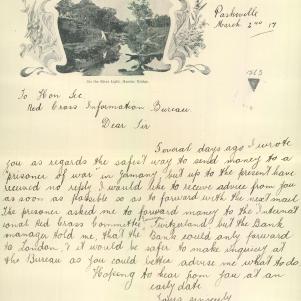 Paskeville
March 2nd 17
On the River Light, Hawker Bridge.
1563
To Hon Sec
Red Cross Information Bureau.
Dear Sir
Several days ago I wrote
you as regards the safest way to send money to a
prisoner of war in Germany but up to the present have
received no reply I would like to receive advice from you
as soon as possible so as to forward with the next mail
The prisoner asked me to forward money to the Internat
ional Red Cross Committee, Switzerland, but the Bank
manager told me that the Bank could only forward
to London, & it would be safer to make inquiry at
the Bureau as you could better advise me what to do.
Hoping to hear from you at an
early date
Yours sincerely